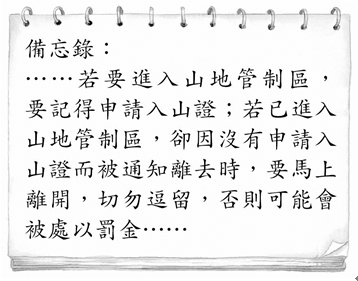 備忘錄：
……若要進入山地管制區，
要記得申請入山證；若已進入
山地管制區，卻因沒有申請入
山證而被通知離去時，要馬上
離開，切勿逗留，否則可能會
被處以罰金……